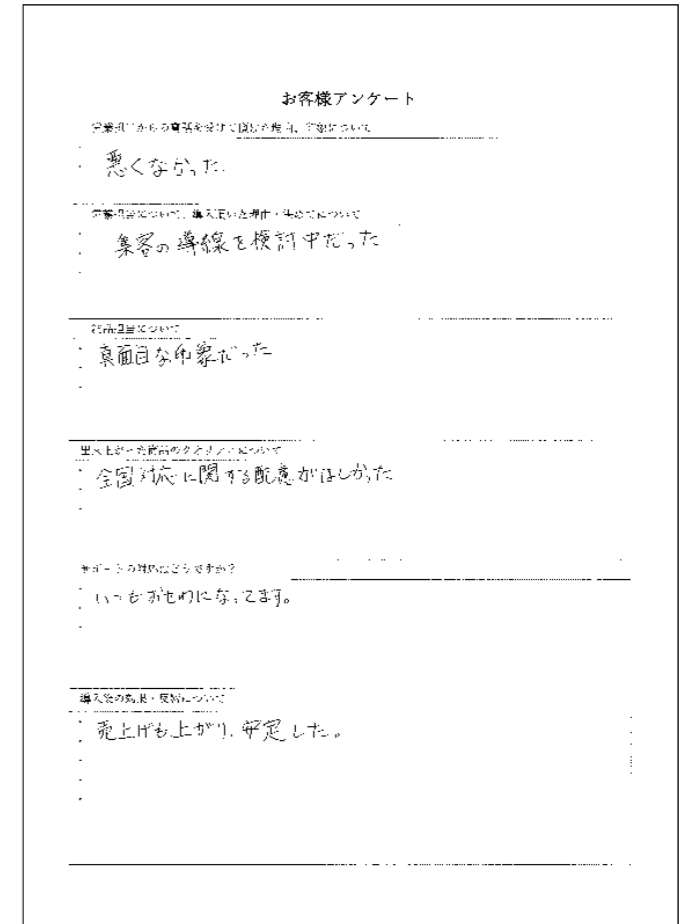 お客様アンケート
営業担当からの電話を受けて頂けた理由、印象について
悪くなかった
営業担当について、導入頂いた理由・決めてについて
集客の導線を検討中だった
商品担当について
真面目な印象だった
出来上がった商品のクオリティについて
全国対応に関する配慮がほしかった
サポートの対応はどうですか?
いつもお世わになってます。
導入後の効果・反響について
売上げも上がり、安定した。